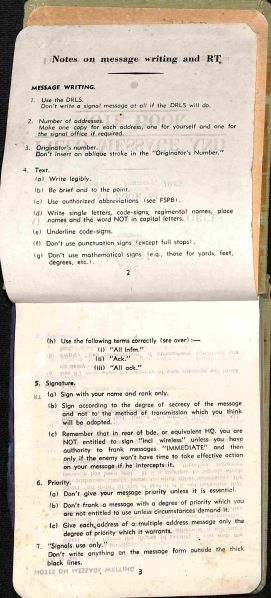 Notes on message writing and RT
MESSAGE WRITING.
1. Use the DRLS.
Don't write a signal message at all if the DRLS will do.
2. Number of addresses.
Make one copy for each address, one for yourself and one for
the signal office if required.
3. Originator's number.
Don't insert an oblique stroke in the "Originator's Number."
4. Text.
(a) Write legibly.
(b) Be brief and to the point.
(c) Use authorized abbreviations (see FSPB).
(d) Write single letters, code-signs, regimental names, place
names and the word NOT in capital letters.
(e) Underline code-signs.
(f) Don't use punctuation signs (except full stops).
(g) Don't use mathematical signs (e.g., those for yards, feet,
degrees, etc.).
2
(h) Use the following terms correctly (see over) :—
(i) "All infm."
(ii) "Ack."
(iii) "All ack."
5. Signature.
(a) Sign with your name and rank only.
(b) Sign according to the degree of secrecy of the message
and not to the method of transmission which you think
will be adopted.
(c) Remember that in rear of bde. or equivalent HQ. you are
NOT entitled to sign "Incl wireless" unless you have
authority to frank messages "IMMEDIATE" and then
only if the enemy won't have time to take effective action
on your message if he intercepts it.
6. Priority.
(a) Don't give your message priority unless it is essential.
(b) Don't frank a message with a degree of priority which you
are not entitled to use unless circumstances demand it.
(c) Give each address of a multiple address message only the
degree of priority which it warrants.
7. "Signals use only."
Don't write anything on the message form outside the thick
black lines.
3